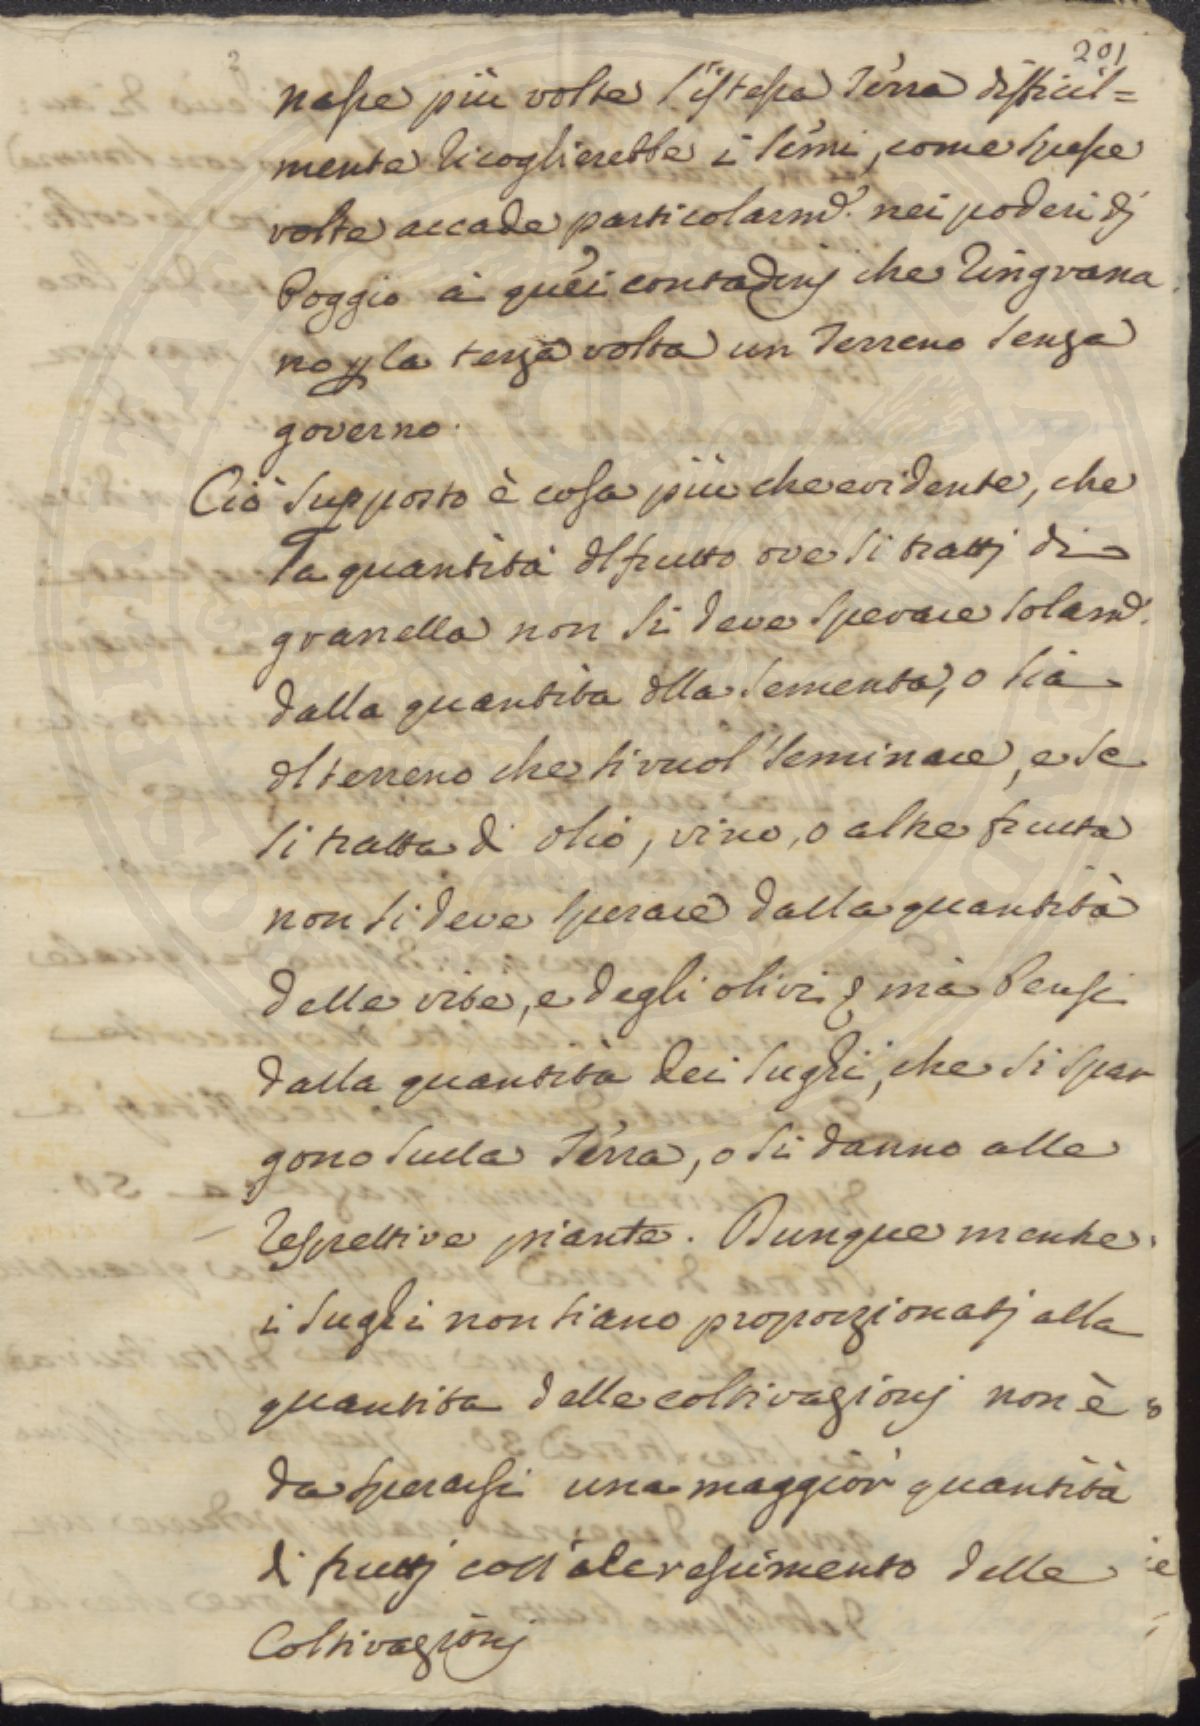 201
nasse più volte l'istessa Terra difficil=
mente ricoglierebbe i semi, come spesse
volte accade particolarmᵉ. nei poderi dj
Poggio à quei contadinj che ringrana
no p la terza volta un Terreno senza
governo.
Ciò supposto è cosa più che evidente, che
la quantità dl frutto ove si trattj di
granella non si deve sperare solamᵉ.
dalla quantità dlla sementa, o sia
dl terreno che si vuol seminare, e se
si tratta di olio, vino, o altre frutta
non si deve sperare dalla quantità
delle vite, e degli olivi, mà bensi
dalla quantità dei sughi, che si spar
gono sulla Terra, o si danno alle
respettive piante. Dunque mentre
i sughi non siano proporzionatj alla
quantità delle coltivazionj non è
da sperarsi una maggior quantità
di fruttj coll'accrescimento delle
Coltivazionj